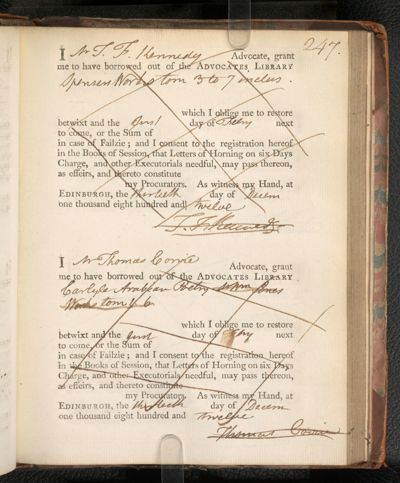 247.
I Mr T. F. Kennedy Advocate, grant
me to have borrowed out of the ADVOCATES LIBRARY
Spensers Works tom 3 to 7 inclus.
which I oblige me to restore
betwixt and the first day of Feby next
to come, or the Sum of
in case of Failzie; and I consent to the registration hereof
in the Books of Session, that Letters of Horning on six Days
Charge, and other Executorials needful, may pass thereon,
as effeirs, and thereto constitute
my Procurators. As witness my Hand, at
EDINBURGH, the day of Decem
one thousand eight hundred and twelve
T. F. Kennedy
I Mr Thomas Corrie
Advocate, grant
me to have borrowed out of the ADVOCATES LIBRARY
Carlyle Arabian Poetry Jones
Works tom 6
which I oblige me to restore
betwixt and the first day of Feby next
to come, or the Sum of
in case of Failzie; and I consent to the registration hereof
in the Books of Session, that Letters of Horning on six Days
Charge, and other Executorials needful, may pass thereon,
as effeirs, and thereto constitute
my Procurators. As witness my Hand, at
EDINBURGH, the day of Decem
one thousand eight hundred and twelve
Thomas Corrie